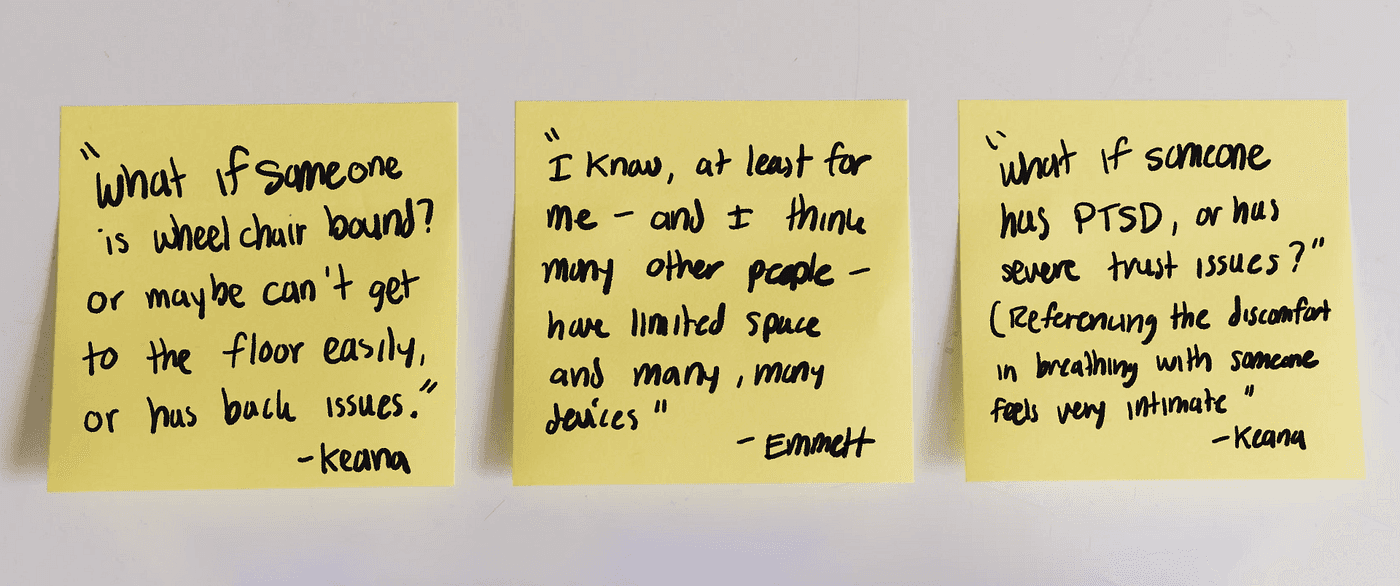 "What if someone
is wheelchair bound?
or maybe can't get
to the floor easily,
or has back issues."
-Keana
"I know, at least for
me - and I think
many other people -
have limited space
and many, many
devices"
- Emmett
"what if someone
has PTSD, or has
severe trust issues?"
(Referencing the discomfort
in breathing with someone
feels very intimate"
-Keana